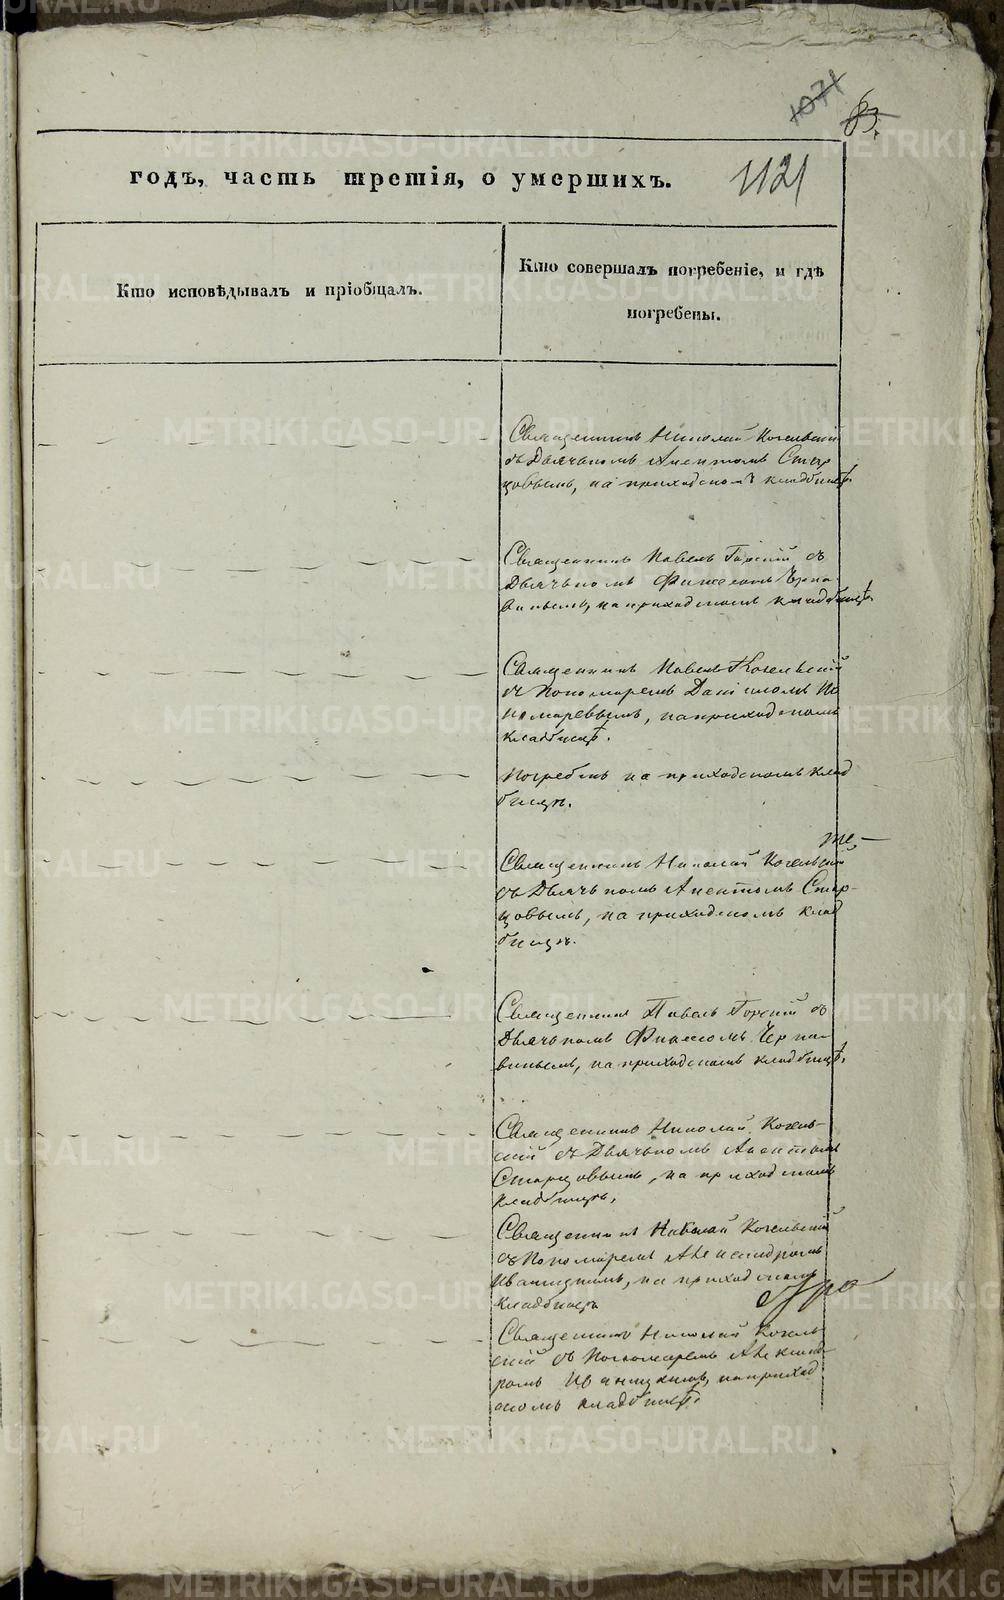 1071
83.
1121
годъ, часть третія, о умершихъ.
Кто исповѣдывалъ и пріобщалъ.
Кто совершалъ погребеніе, и гдѣ
погребены.
Священникъ Николай Когельскій
съ Дьячькомъ Акентомъ Стар
цовымъ, на приходскомъ кладбищѣ.
Священникъ Павелъ Горскій съ
Дьячькомъ Черна
виньмъ, на приходскомъ кладбищѣ.
Священникъ Павелъ Когельскій
съ Пономаремъ Даніиломъ По
номаревымъ, на приходскомъ
кладбищѣ.
Погребенъ на приходскомъ клад
бищѣ.
Священникъ Николай Когельскій
съ Дьячькомъ Акентомъ Стар-
цовымъ, на приходскомъ клад
бищѣ.
Священникъ Павелъ Горскій съ
Дьячькомъ Черна-
виньмъ, на приходскомъ кладбищѣ.
Священникъ Николай Когель-
скій съ Дьячькомъ Акентомъ
Старцовымъ, на приходскомъ
кладбищѣ.
Священникъ Николай Когельскій
съ Пономаремъ Александромъ
Иваницкимъ, на приходскомъ
кладбищѣ
Священникъ Николай Когель
скій съ Пономаремъ Александ-
ромъ Иваницкимъ, на приход
скомъ кладбищѣ.
METRIKI.GASO-URAL.RU